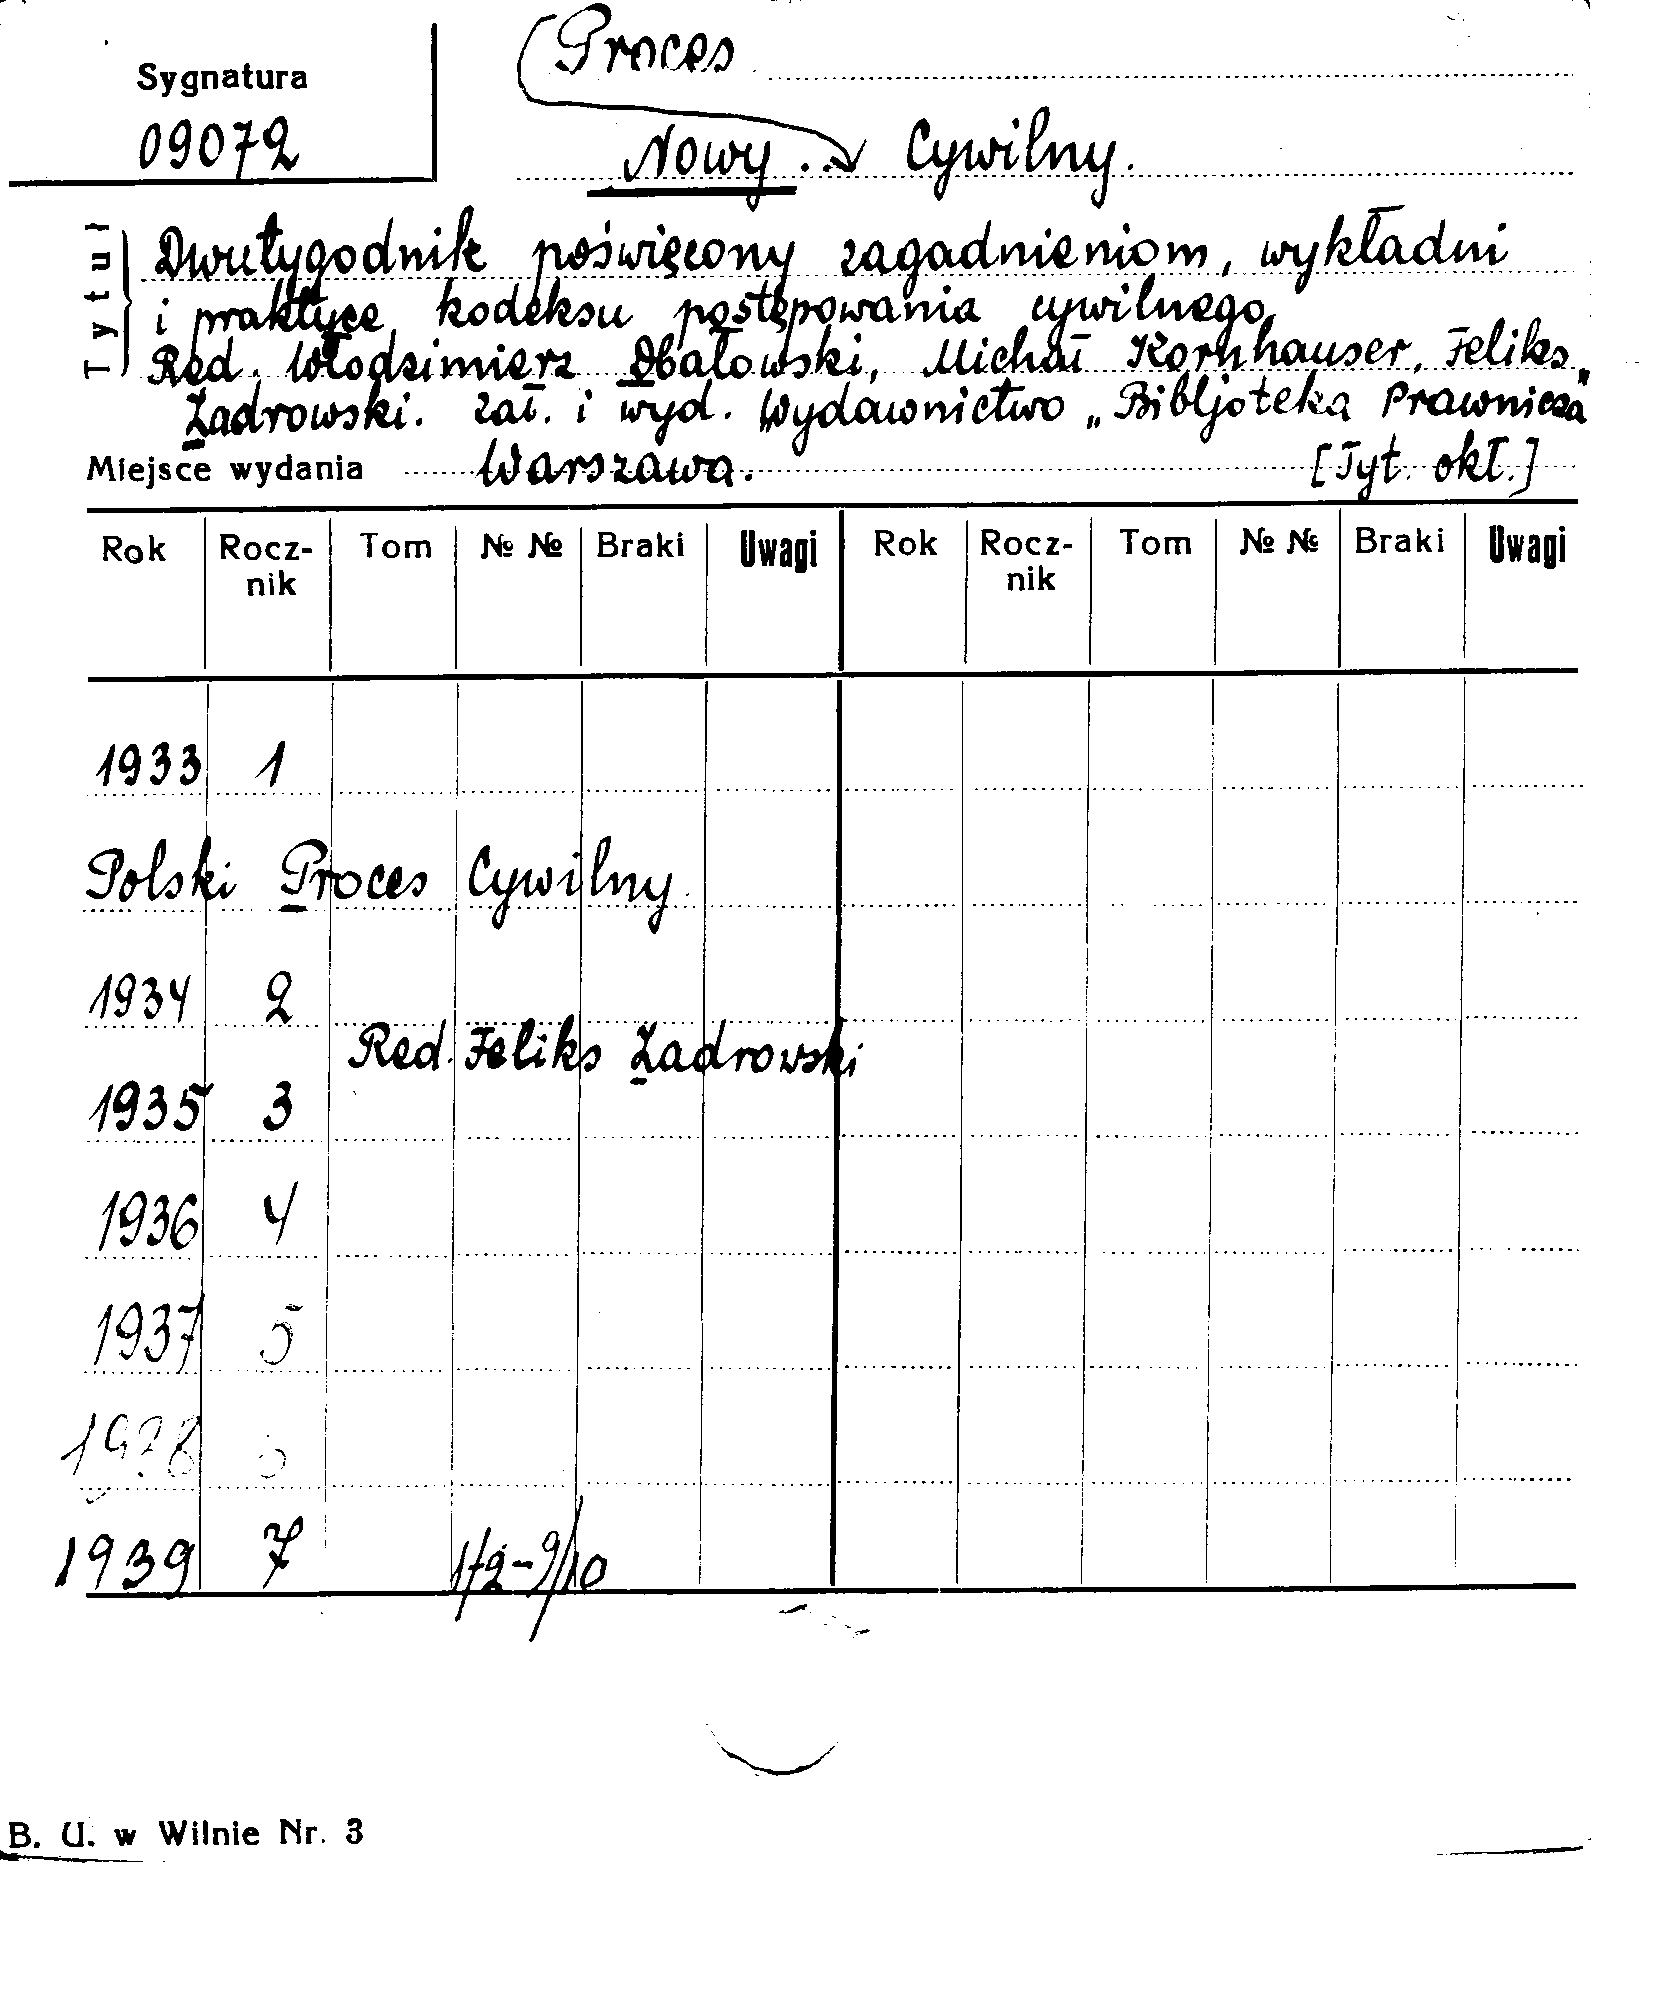 Sygnatura
09072
Proces
Nowy .. Cywilny.
Tytuł
Dwutygodnik poświęcony zagadnieniom, wykładni
i praktyce kodeksu postępowania cywilnego.
Red. Włodzimierz Dbałowski, Michał Kornhauser, Feliks
Zadrowski. Zał. i wyd. Wydawnictwo „Bibljoteka Prawnicza"
Miejsce wydania Warszawa. [Tyt. okł.]
Rok Rocz-nik Tom № № Braki Uwagi Rok Rocz-nik Tom № № Braki Uwagi
1933 1
Polski Proces Cywilny
1934 2
Red. Feliks Zadrowski
1935 3
1936 4
1937 5
1938 6
1939 7 1/2-9/10
B. U. w Wilnie Nr. 3